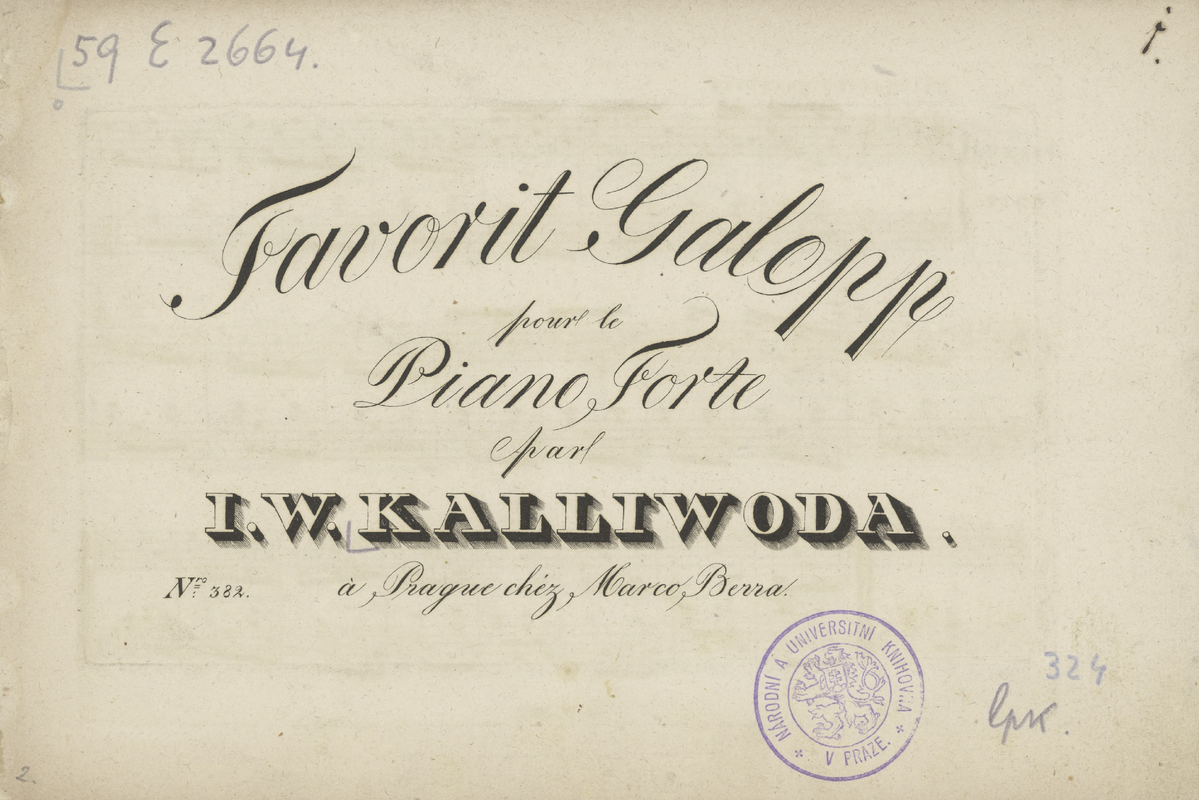 59 E 2664.
Favorit Galopp
pour le
Piano Forte
par
I. W. KALLIWODA.
Nro 382.
à Prague chéz Marco Berra.
NÁRODNÍ A UNIVERSITNÍ KNIHOVNA
V PRAZE.
324
2.